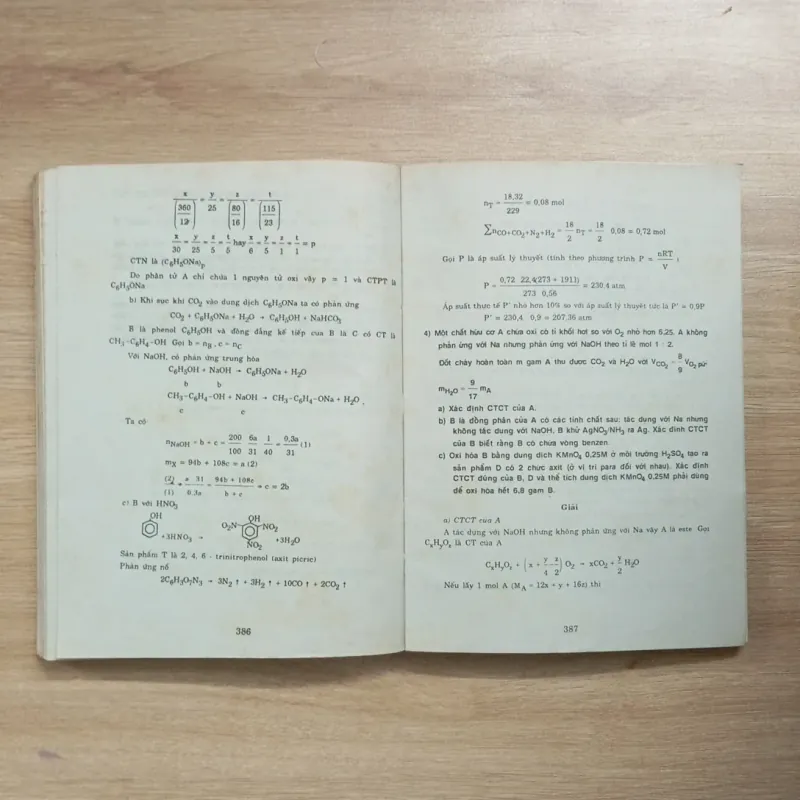 x/(360/12) = y/25 = z/(80/16) = t/(115/23)
x/30 = y/25 = z/5 = t/5 hay x/6 = y/5 = z/1 = t/1 = p
CTN là (C₆H₅ONa)p
Do phân tử A chỉ chứa 1 nguyên tử oxi vậy p = 1 và CTPT là
C₆H₅ONa
b) Khi sục khí CO₂ vào dung dịch C₆H₅ONa ta có phản ứng
CO₂ + C₆H₅ONa + H₂O → C₆H₅OH + NaHCO₃
B là phenol C₆H₅OH và đồng đẳng kế tiếp của B là C có CT là
CH₃-C₆H₄-OH Gọi b = nB, c = nC
Với NaOH, có phản ứng trung hòa
C₆H₅OH + NaOH → C₆H₅ONa + H₂O
b b
CH₃-C₆H₄-OH + NaOH → CH₃-C₆H₄-ONa + H₂O
c c
Ta có
nNaOH = b + c = 200/100 6a/31 1/40 = 0,3a/31 (1)
mX = 94b + 108c = a (2)
(2)/(1) → a 31/0,3a = 94b + 108c/b + c → c = 2b
c) B với HNO₃
OH +3HNO₃ → OH O₂N NO₂ NO₂ +3H₂O
Sản phẩm T là 2, 4, 6 - trinitrophenol (axit picric)
Phản ứng nổ
2C₆H₃O₇N₃ → 3N₂ ↑ + 3H₂ ↑ + 10CO ↑ + 2CO₂ ↑
386
nT = 18,32/229 = 0,08 mol
∑nCO+CO₂+N₂+H₂ = 18/2 nT = 18/2 0,08 = 0,72 mol
Gọi P là áp suất lý thuyết (tính theo phương trình P = nRT/V)
P = 0,72 22,4(273 + 1911)/273 0,56 = 230,4 atm
Áp suất thực tế P' nhỏ hơn 10% so với áp suất lý thuyết tức là P' = 0,9P
P' = 230,4 0,9 = 207,36 atm
4) Một chất hữu cơ A chứa oxi có tỉ khối hơi so với O₂ nhỏ hơn 6,25. A không
phản ứng với Na nhưng phản ứng với NaOH theo tỉ lệ mol 1 : 2.
Đốt cháy hoàn toàn m gam A thu được CO₂ và H₂O với VCO₂ = 8/9 VO₂ pứ.
mH₂O = 9/17 mA
a) Xác định CTCT của A.
b) B là đồng phân của A có các tính chất sau: tác dụng với Na nhưng
không tác dụng với NaOH, B khử AgNO₃/NH₃ ra Ag. Xác định CTCT
của B biết rằng B có chứa vòng benzen.
c) Oxi hóa B bằng dung dịch KMnO₄ 0,25M ở môi trường H₂SO₄ tạo ra
sản phẩm D có 2 chức axit (ở vị trí para đối với nhau). Xác định
CTCT đúng của B, D và thể tích dung dịch KMnO₄ 0,25M phải dùng
để oxi hóa hết 6,8 gam B.
Giải
a) CTCT của A
A tác dụng với NaOH nhưng không phản ứng với Na vậy A là este Gọi
CxHyOz là CT của A
CxHyOz + (x + y/4 - z/2) O₂ → xCO₂ + y/2 H₂O
Nếu lấy 1 mol A (MA = 12x + y + 16z) thì
387